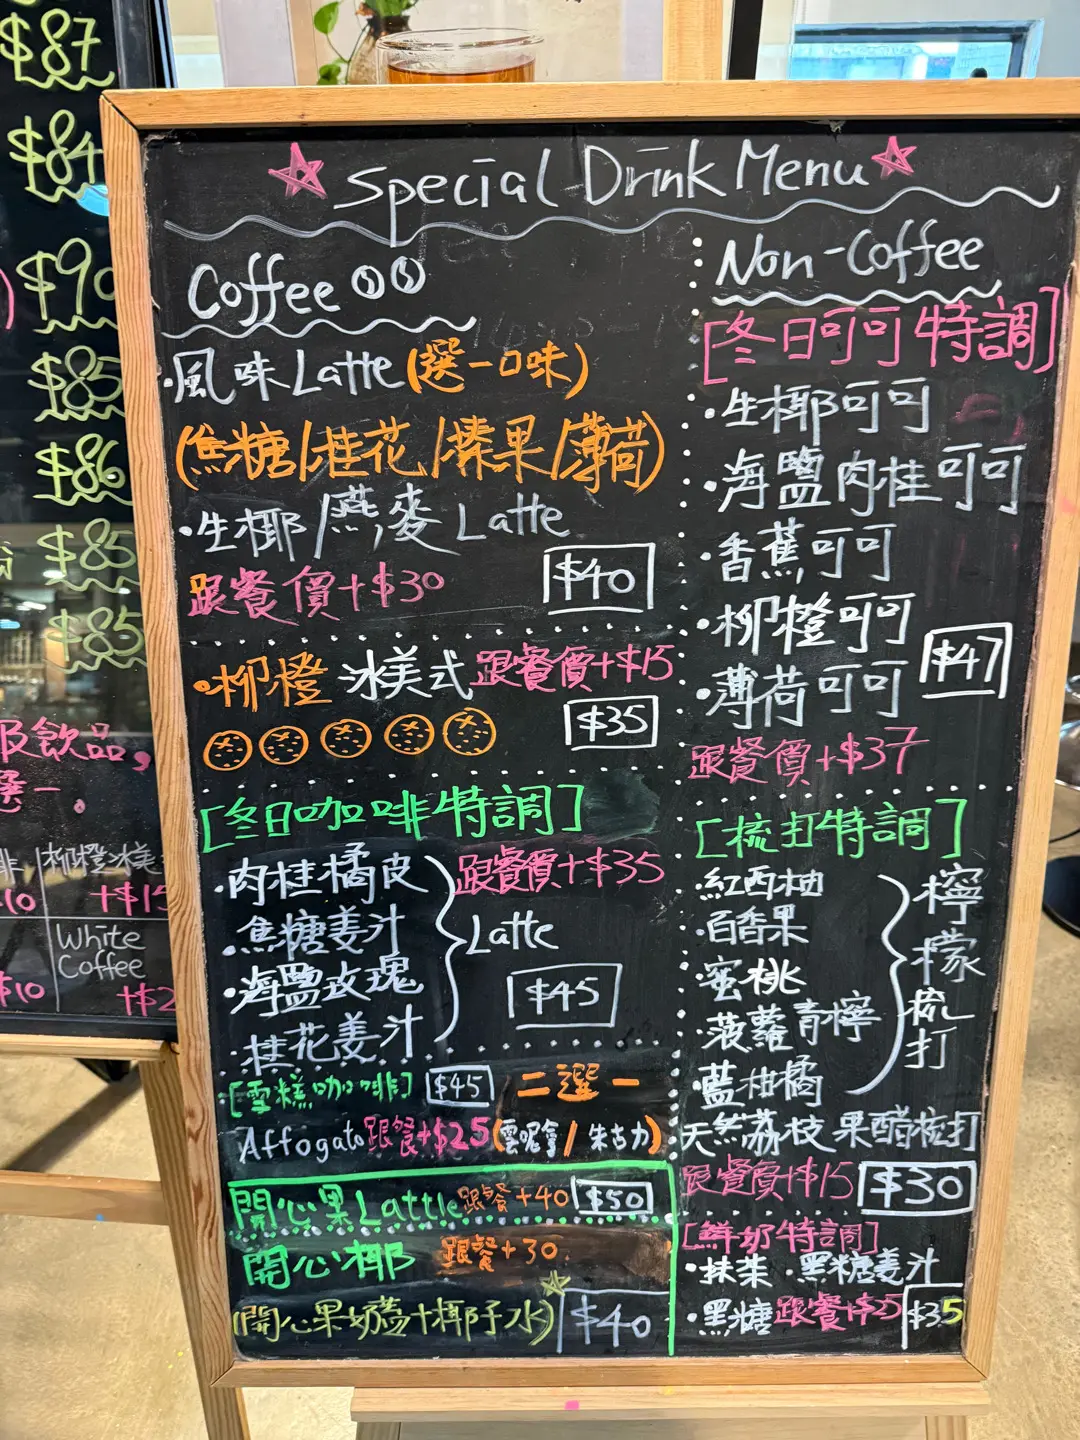 $87
$84
$90
$85
$86
$85
$85
飲品,
一。
柳橙冰美
+$15
10
White
Coffee
$10
+$2
Special Drink Menu
Coffee
風味Latte(選一口味)
(焦糖/桂花/榛果/薄荷)
·生椰/燕麥 Latte
跟餐價+$30
$40
·柳橙 冰美式 跟餐價+$15
$35
[冬日咖啡特調]
·肉桂橘皮
·焦糖姜汁
·海鹽玫瑰
·桂花姜汁
跟餐價+$35
Latte
$45
[雪糕咖啡] $45 二選一
Affogato 跟餐+$25 (雲呢拿/朱古力)
開心果Lattle 跟餐+40 $50
開心椰 跟餐+30
(開心果奶蓋+椰子水) $40
Non-Coffee
[冬日可可特調]
·生椰可可
·海鹽肉桂可可
·香蕉可可
·柳橙可可
·薄荷可可
$47
跟餐價+$37
[梳打特調]
·紅西柚
·百香果
·蜜桃
·菠蘿青檸
·藍柑橘
檸檬梳打
天然荔枝果醋梳打
跟餐價+$15 $30
[鮮奶特調]
·抹茶 ·黑糖姜汁
·黑糖 跟餐+$25 $35